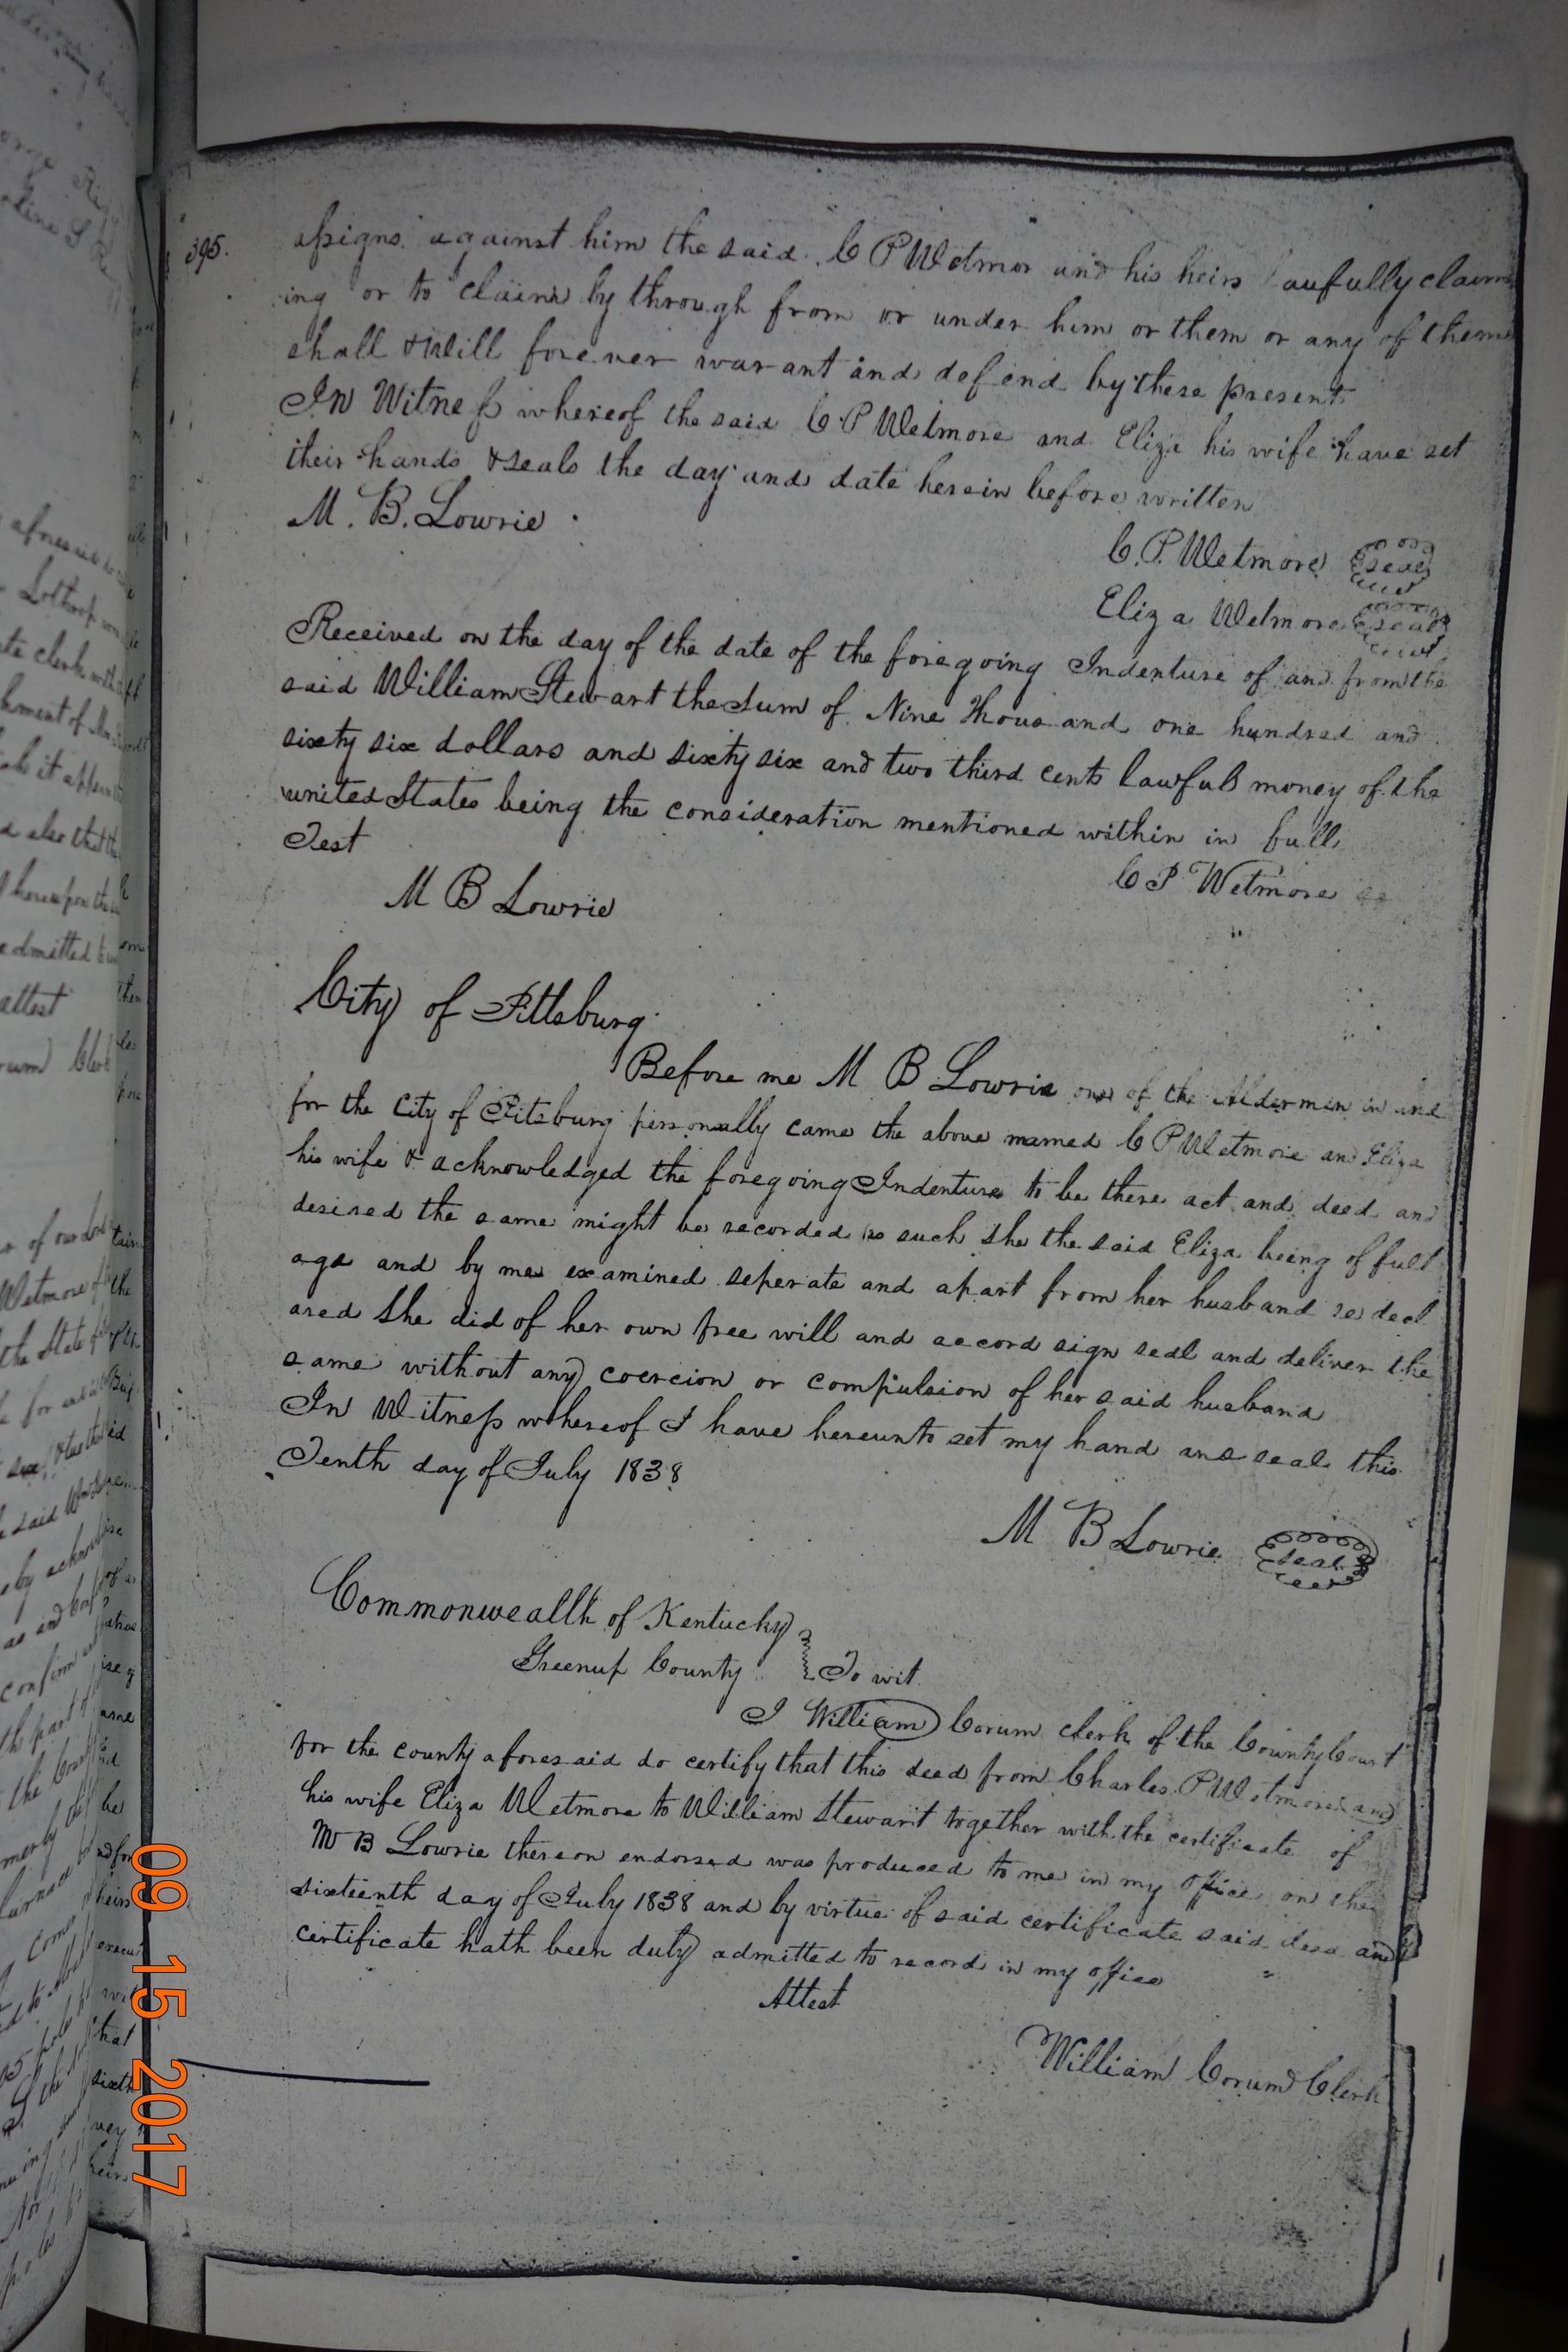 395.
assigns against him the said C P Wetmor and his heirs lawfully claim
ing or to claim by through from or under him or them or any of them
shall & Will forever warant and defend by these presents
In Witness whereof the said C P Wetmore and Eliza his wife have set
their hands & seals the day and date herein before written
M. B. Lowrie
C. P. Wetmore seal
Eliza Wetmore seal
Received on the day of the date of the foregoing Indenture of and from the
said William Stewart the Sum of Nine Thousand one hundred and
sixty six dollars and sixty six and two third cents lawful money of the
united States being the consideration mentioned within in full
Test
C P Wetmore
M B Lowrie
City of Pittsburg
Before me M B Lowrie one of the Aldermen in and
for the City of Pitsburg personally came the above named C P Wetmore and Eliza
his wife & acknowledged the foregoing Indenture to be there act and deed and
desired the same might be recorded as such she the said Eliza being of full
age and by me examined seperate and apart from her husband se decl
ared she did of her own free will and accord sign seal and deliver the
same without any coercion or compulsion of her said husband
In Witness whereof I have hereunto set my hand and seal this
Tenth day of July 1838
M B Lowrie seal
Commonwealth of Kentucky
Greenup County To wit
I William Corum clerk of the County Court
for the county aforesaid do certify that this deed from Charles P Wetmore and
his wife Eliza Wetmore to William Stewart together with the certificate of
M B Lowrie thereon endorsed was produced to me in my office on the
sixteenth day of July 1838 and by virtue of said certificate said deed and
certificate hath been duly admitted to record in my office
Attest
William Corum Clerk
09 15 2017